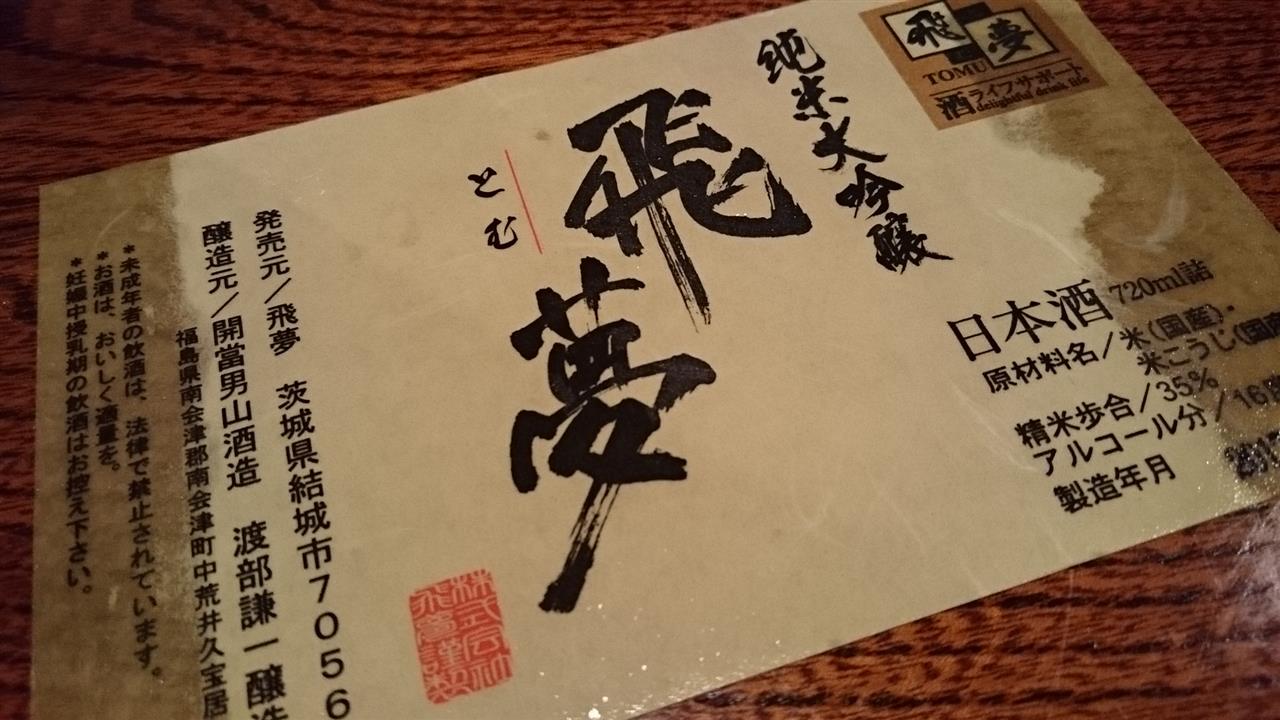 飛夢
TOMU
酒ライフサポート
delightful drink life
純米大吟醸
飛夢
とむ
日本酒 720ml詰
原材料名／米(国産)・
米こうじ(国産
精米歩合／35%
アルコール分／16
製造年月
発売元／飛夢 茨城県結城市7056
醸造元／開當男山酒造 渡部謙一醸造
福島県南会津郡南会津町中荒井久宝居
＊未成年者の飲酒は、法律で禁止されています。
＊お酒は、おいしく適量を。
＊妊娠中授乳期の飲酒はお控え下さい。